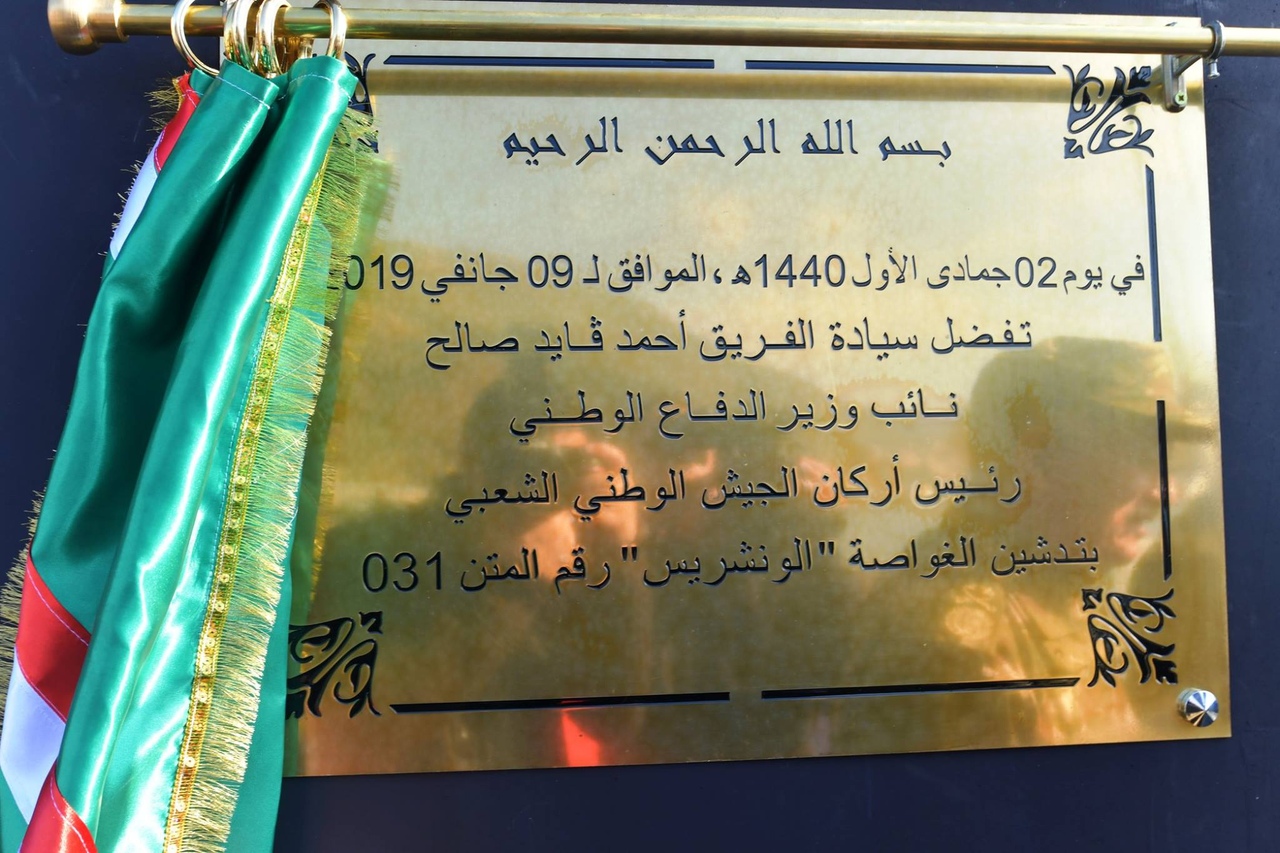 بسم الله الرحمن الرحيم
في يوم 02 جمادى الأول 1440هـ، الموافق لـ 09 جانفي 2019
تفضل سيادة الفريق أحمد ڤايد صالح
نائب وزير الدفاع الوطني
رئيس أركان الجيش الوطني الشعبي
بتدشين الغواصة "الونشريس" رقم المتن 031